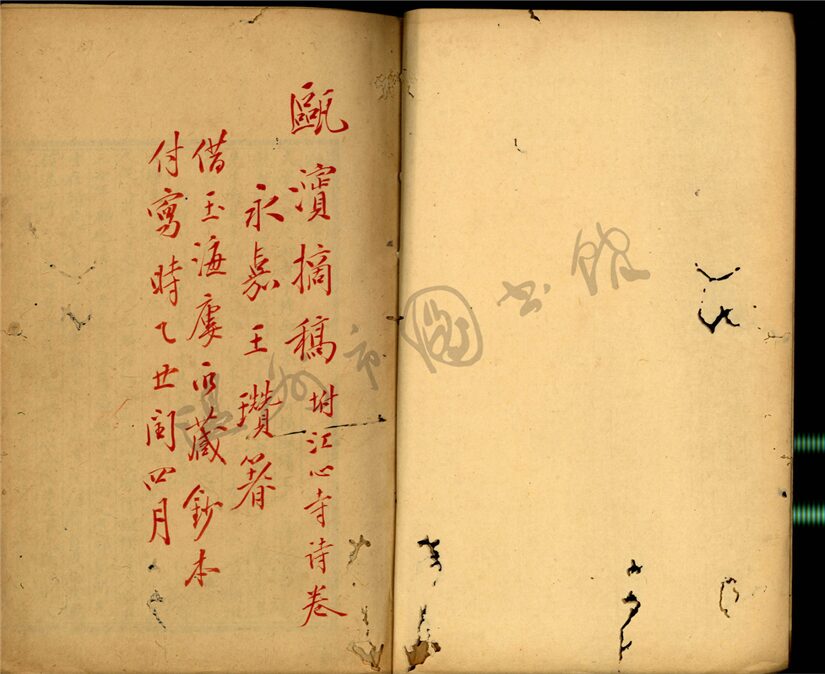 甌濱摘稿 坿江心寺诗卷
永嘉王瓚著
借玉海廔所藏鈔本
付寫時乙丑閏四月
温州市图书馆